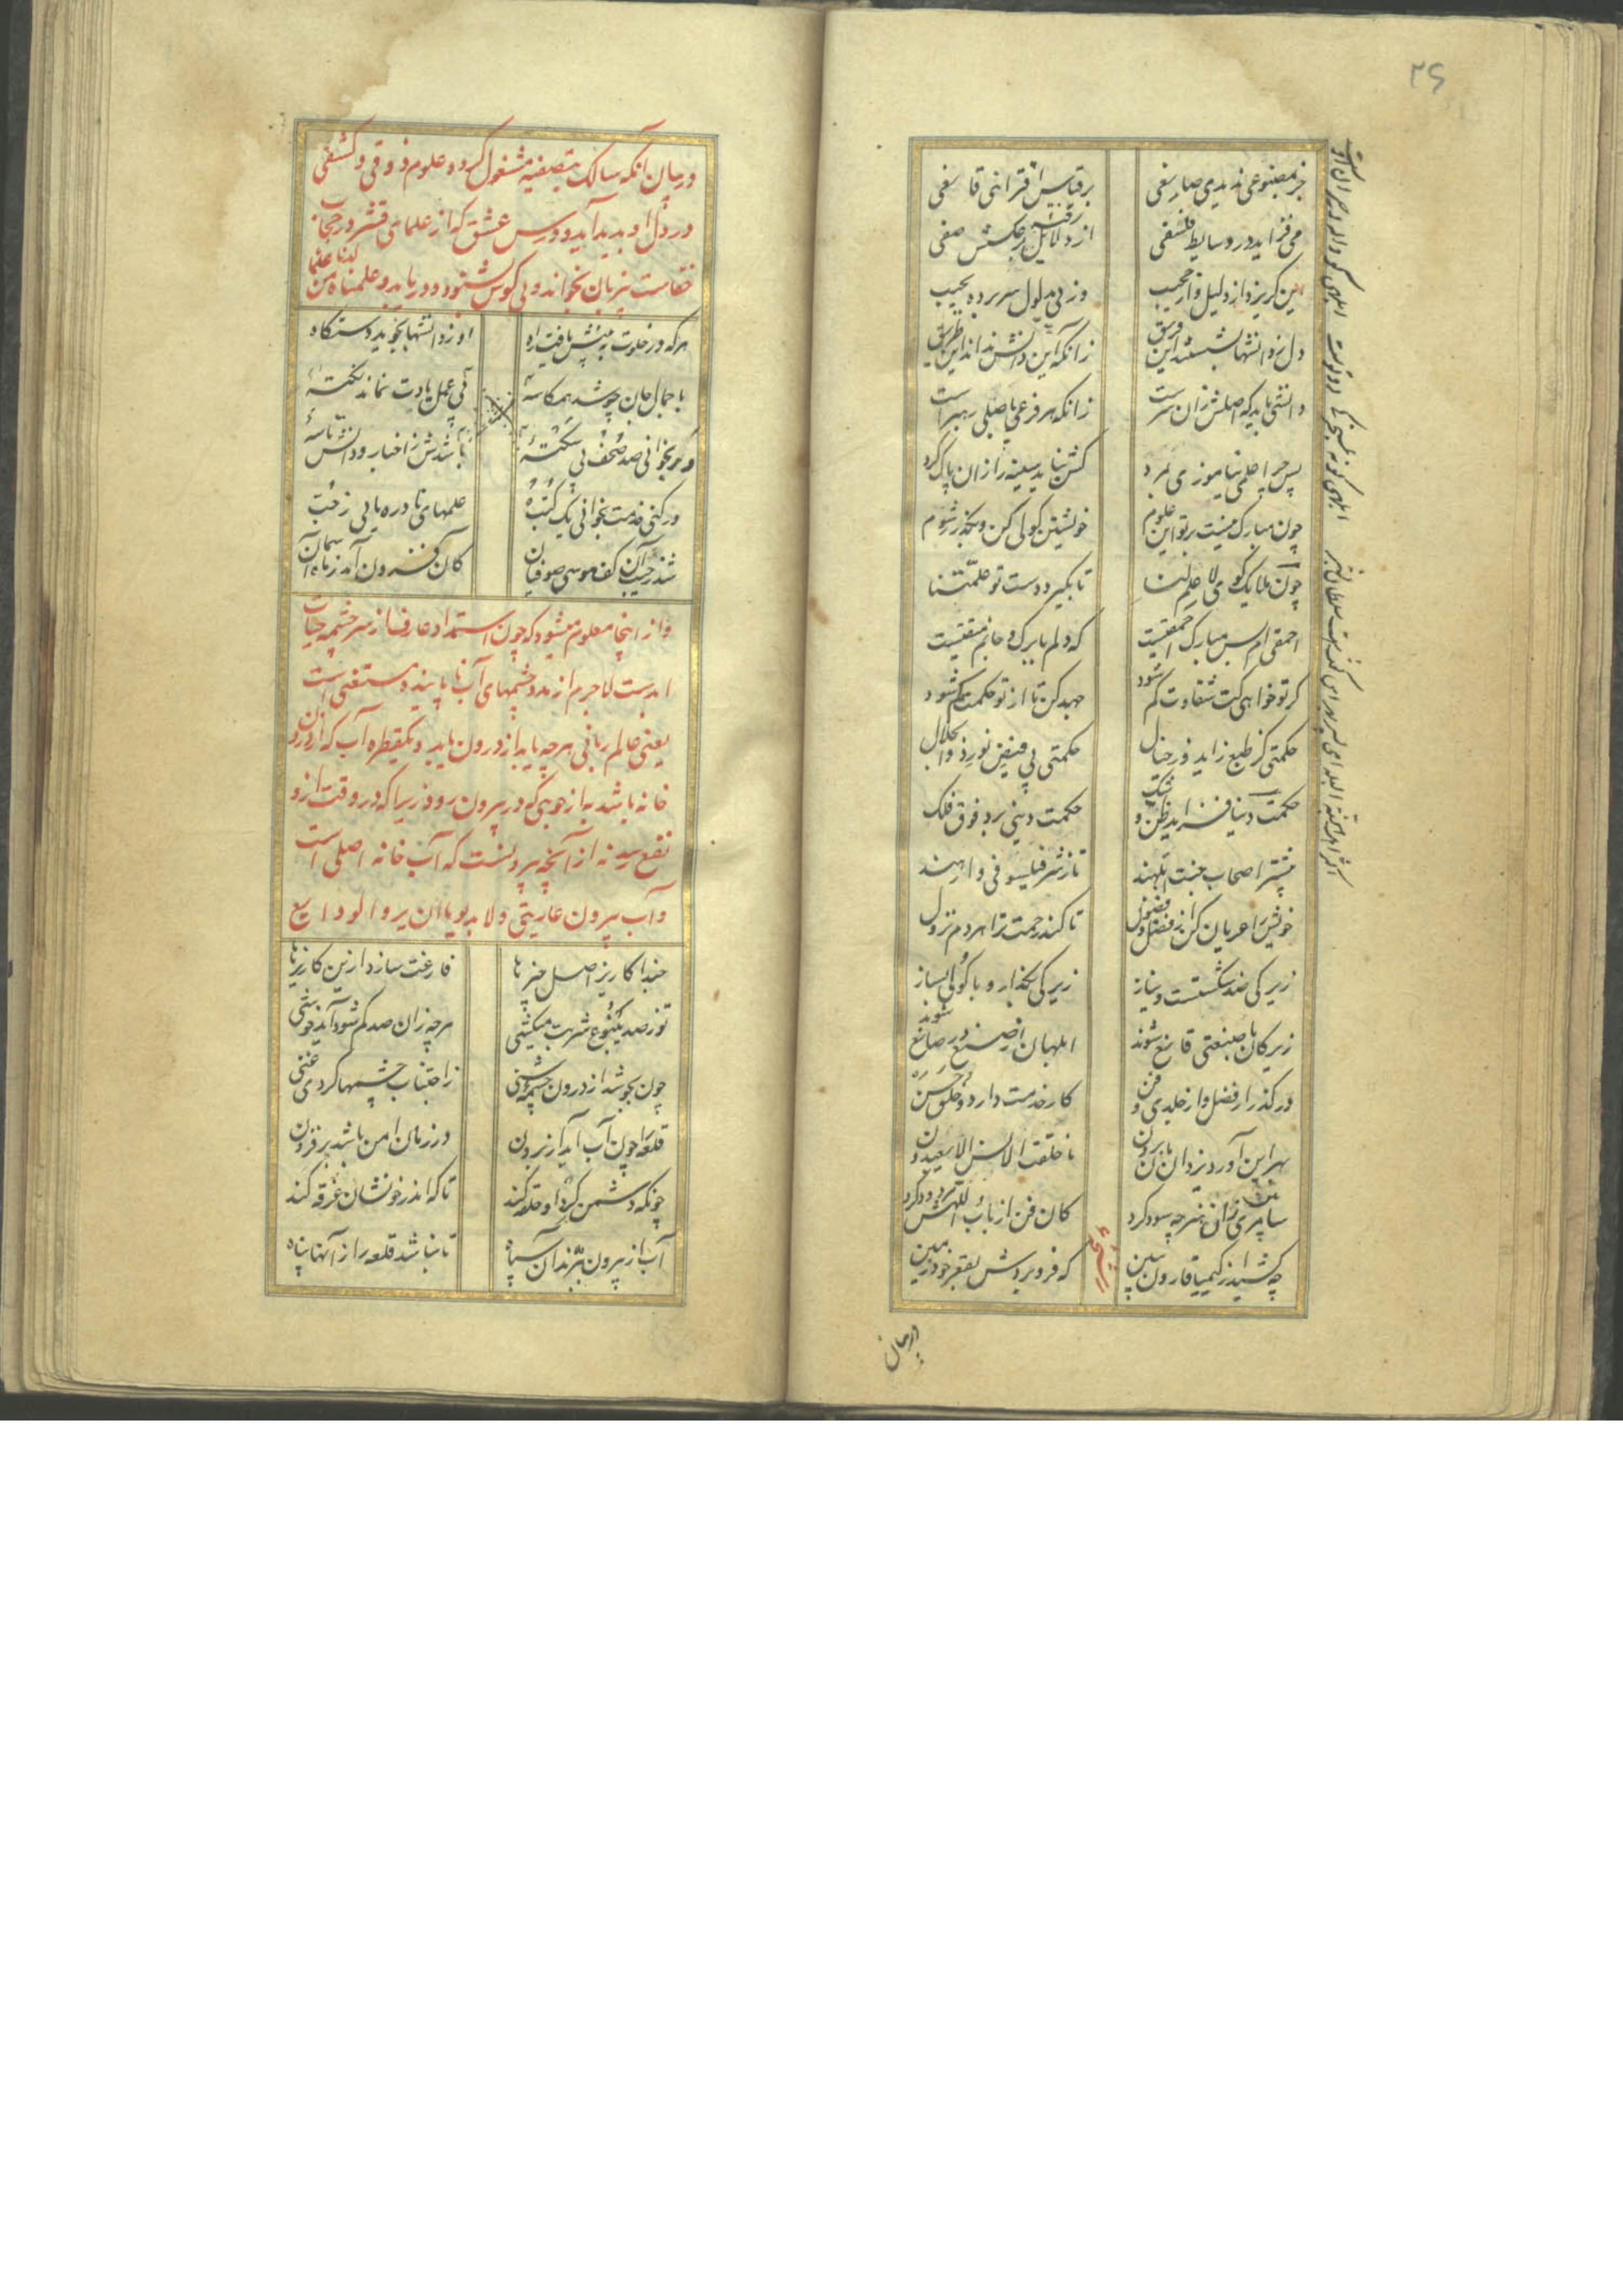 ۲۶
جز بمصنوعی ندیدی صانعی
بر قیاس اقترانی قانعی
می فزاید در وسایط فلسفی
از دلایل بر عکسش صفی
این گریزد از دلیل و از حجیب
وز پی مدلول سر برده بجیب
دل ز دانشها بشستند این فریق
زانکه این دانش نداند این طریق
دانشی باید که اصلش زان سرست
زانکه هر فرعی باصلی رهبر است
پس چرا علمی بیاموزی بمرد
کش بباید سینه را زان پاک کرد
چون مبارک نیست بر تو این علوم
خویشتن گولی کن و بگذر ز شوم
چون ملایک گوی لا علم لنا
تا بگیرد دست تو علمتنا
احمقی ام بس مبارک احمقیست
که دلم با برگ و جانم متقیست
گر تو خواهی کت شقاوت کم شود
جهد کن تا از تو حکمت کم شود
حکمتی کز طبع زاید وز خیال
حکمتی بی فیض نور ذو الجلال
حکمت دنیا فزاید ظن و شک
حکمت دینی برد فوق فلک
بیشتر اصحاب جنت ابلهند
تا ز شر فیلسوفی وا رهند
خویش را عریان کن از فضل و فضول
تا کند رحمت ترا هر دم نزول
زیرکی ضد شکستست و نیاز
زیرکی بگذار و با گولی بساز
زیرکان با صنعتی قانع شوند
ابلهان از صنع در صانع شوند
در گذر از فضل و از جلدی و فن
کار خدمت دارد و خلق حسن
بهر این آوردیزدان مان برون
ما خلقت الانس الا یعبدون
سامری را آن هنر چه سود کرد
کان فن از باب اللهش مردود کرد
چه کشید از کیمیا قارون ببین
که فرو بردش بقعر خود زمین
در بیان آنکه سالک بتصفیه مشغول گردد و علوم ذوقی و کشفی
در دل او پدید آید و درس عشق که از علمای قشر در حجاب
خفاست بی زبان بخواند و بی گوش بشنود و دریابد و علمناه من لدنا علما
هر که در خلوت ببینش یافت راه
او ز دانشها نجوید دستگاه
با جمال جان چو شد همکاسهٔ
باشدش ز اخبار و دانش تاسهٔ
ور بخوانی صد صحف بی سکتهٔ
بی عمل یادت نماند نکتهٔ
ور کنی خدمت نخوانی یک کتب
علمهای نادره یابی ز جیب
شد ز جیب آن کف موسی ضو فشان
کان فزون آمد ز ماه آسمان
و از اینجا معلوم میشود که چون استمداد عارف از سرچشمه حیات
ابدست لاجرم از مدد چشمهای آب ناپاینده مستغنی است
یعنی عالم ربانی هرچه یابد از درون یابد و یکقطره آب که از درون
خانه باشد به از جویی که در بیرون رود زیرا که در وقت ازو
نفع رسد نه از آنچه بیرونست که آب خانه اصلی است
و آب بیرون عاریتی ولا بد یوما ان یرد الودایع
حبذا کاریز اصل چیزها
فارغت سازد ازین کاریزها
تو ز صد ینبوع شربت میکشی
هرچه زان صد کم شود آید خوشی
چون بجوشد از درون چشمه سنی
ز اجتناب چشمها گردی غنی
قلعه را چون آب آید از برون
در زمان امن باشد بر فزون
چونکه دشمن گرد او حلقه کند
تا که اندر خونشان غرقه کند
آب از بیرون ببرند آن سپاه
تا نباشد قلعه را زانها پناه